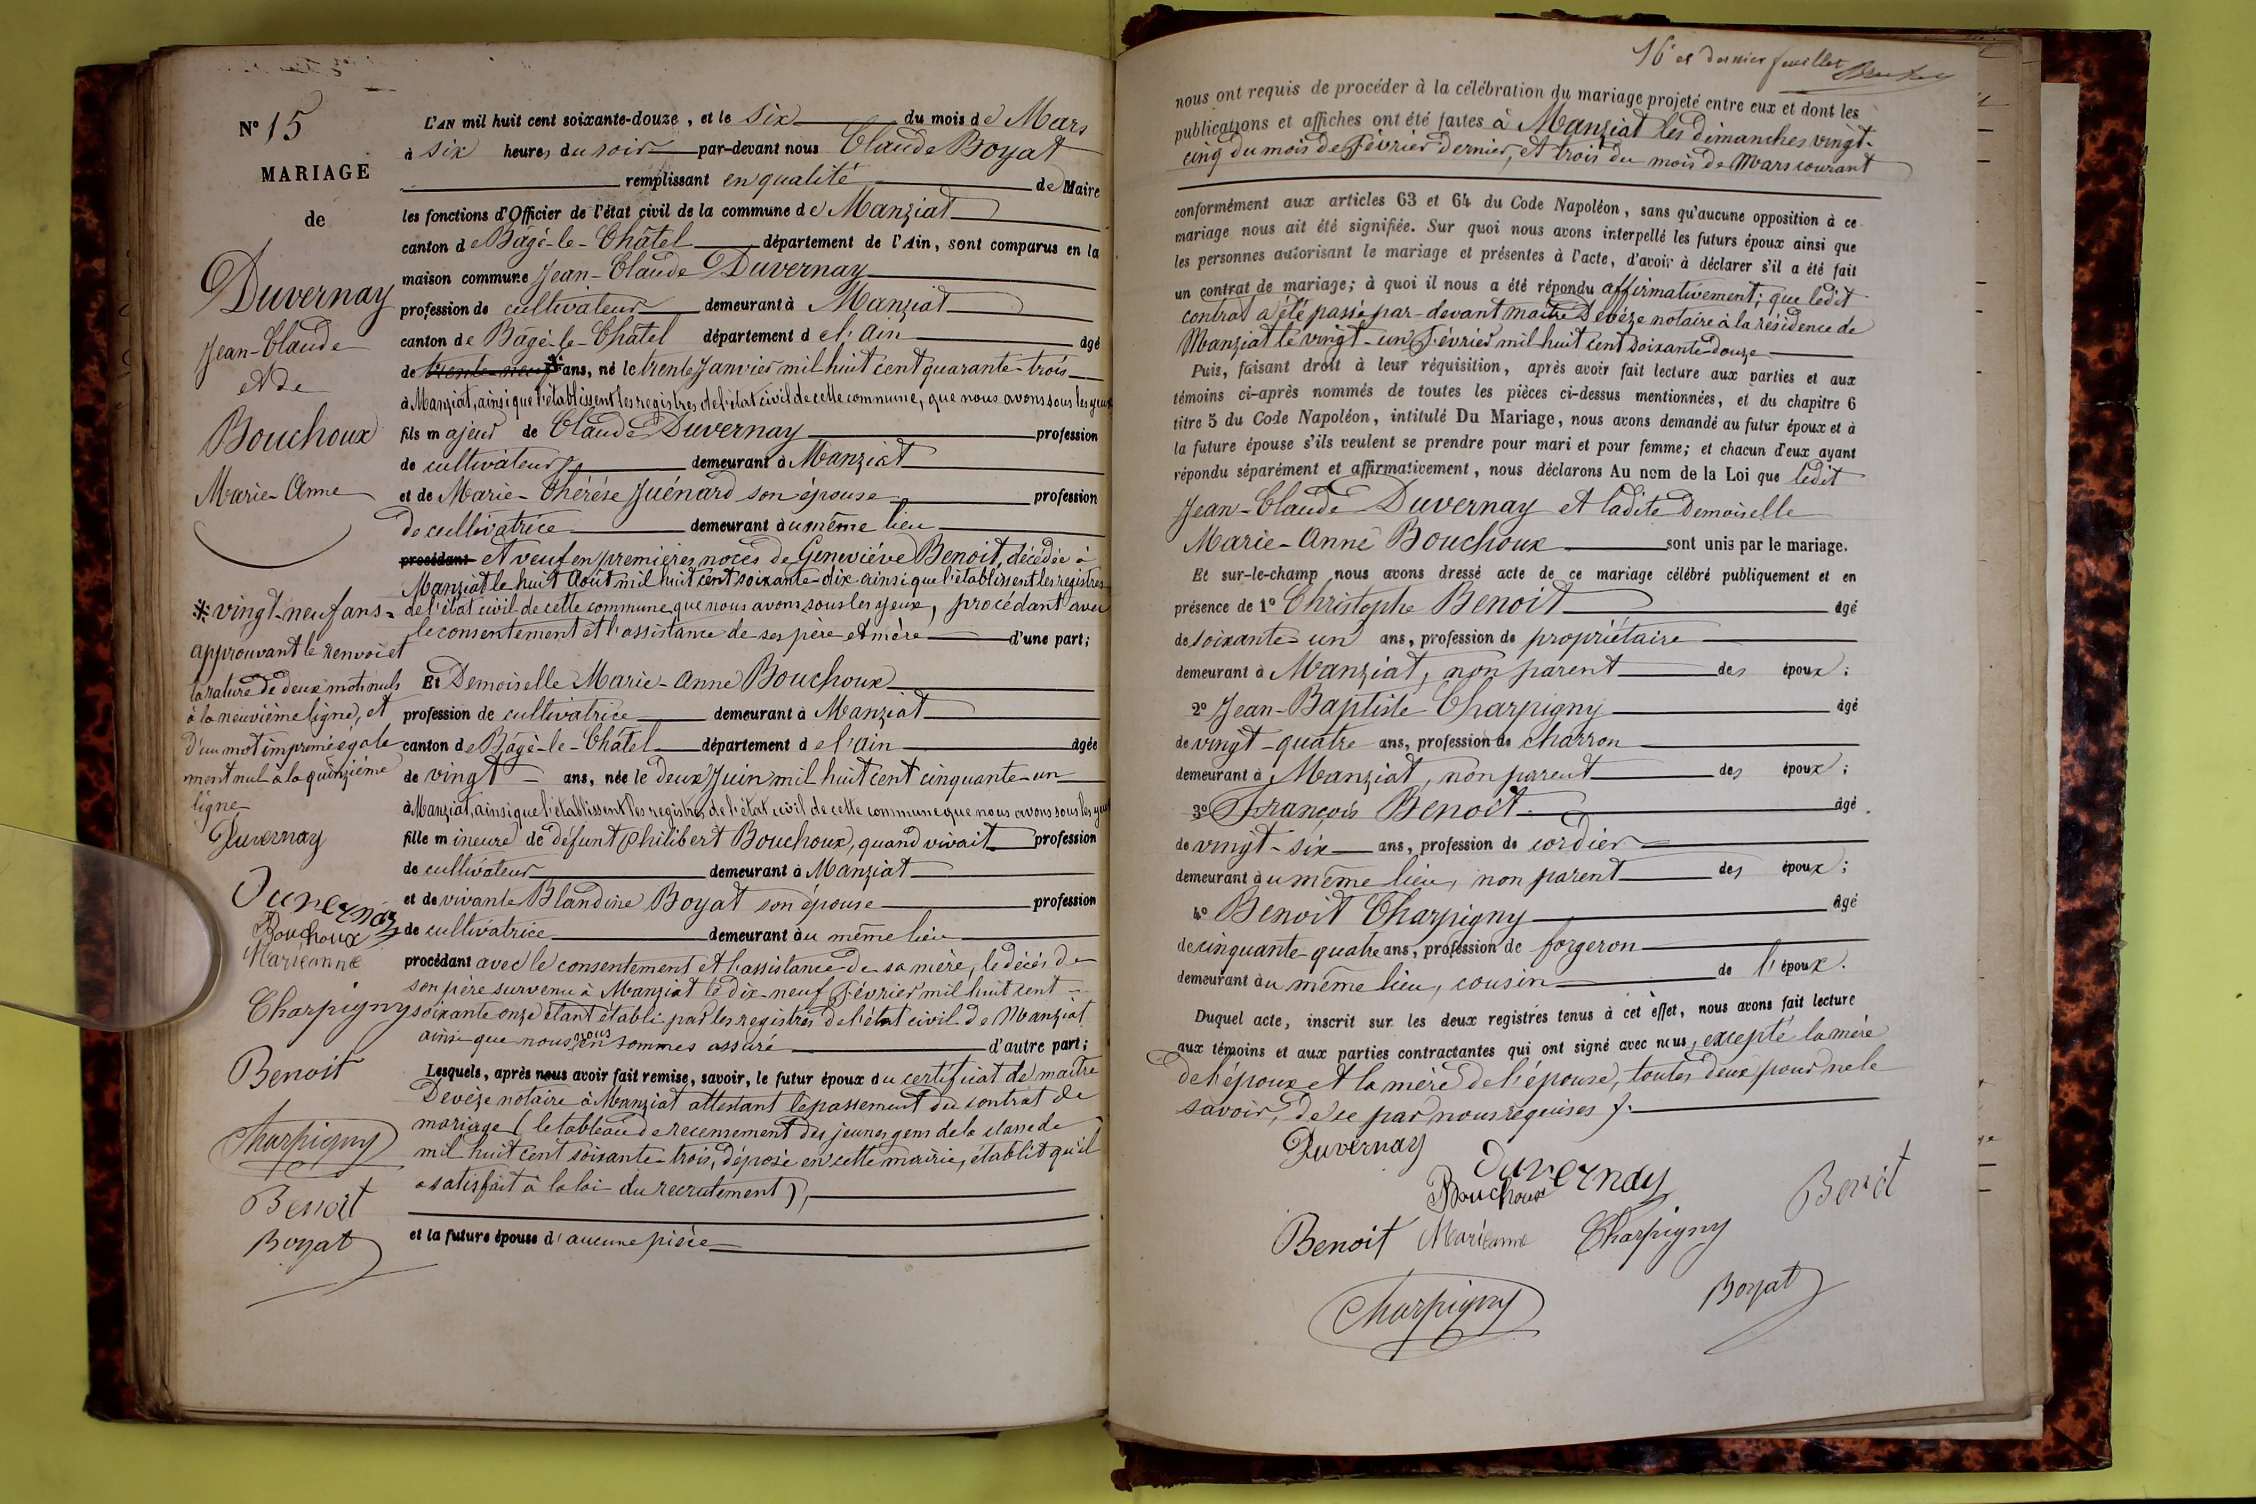 N° 15
MARIAGE
de
Duvernay
Jean-Claude
et de
Bouchoux
Marie-Anne
L'AN mil huit cent soixante-douze, et le six du mois de Mars
à six heures du soir par-devant nous Claude Boyat
remplissant en qualité de Maire
les fonctions d'Officier de l'état civil de la commune de Manziat
canton de Bâgé-le-Châtel département de l'Ain, sont comparus en la
maison commune Jean-Claude Duvernay
profession de cultivateur demeurant à Manziat
canton de Bâgé-le-Châtel département de l'Ain âgé
de trente-neuf * ans, né le trente Janvier mil huit cent quarante-trois
à Manziat, ainsi que l'établissent les registres de l'état civil de cette commune, que nous avons sous les yeux
fils majeur de Claude Duvernay profession
de cultivateur demeurant à Manziat
et de Marie-Thérése Juénard son épouse profession
de cultivatrice demeurant au même lieu
procédant et veuf en premières noces de Geneviève Benoit, décédée à
Manziat le huit Août mil huit cent soixante-dix ainsi que l'établissent les registres
de l'état civil de cette commune que nous avons sous les yeux, procédant avec
le consentement et l'assistance de ses père et mère d'une part;
Et Demoiselle Marie-Anne Bouchoux
profession de cultivatrice demeurant à Manziat
canton de Bâgé-le-Châtel département de l'Ain âgée
de vingt ans, née le deux Juin mil huit cent cinquante-un
à Manziat, ainsi que l'établissent les registres de l'état civil de cette commune que nous avons sous les yeux
fille mineure de défunt Philibert Bouchoux, quand vivait profession
de cultivateur demeurant à Manziat
et de vivante Blandine Boyat son épouse profession
de cultivatrice demeurant au même lieu
procédant avec le consentement et l'assistance de sa mère, le décès de
son père survenu à Manziat le dix-neuf Février mil huit cent
soixante onze étant établi par les registres de l'état civil de Manziat
ainsi que nous nous en sommes assuré d'autre part;
Lesquels, après nous avoir fait remise, savoir, le futur époux du certificat de maitre
Devèze notaire à Manziat attestant le passement du contrat de
mariage (le tableau de recensement des jeunes gens de la classe de
mil huit cent soixante-trois, déposé en cette mairie, établit qu'il
a satisfait à la loi du recrutement),
et la future épouse d'aucune pièce
* vingt-neuf ans =
approuvant le renvoi et
la rature de deux mots nuls
à la neuvième ligne, et
d'un mot imprimé égale
ment nul à la quinzième
ligne
Duvernay
Duvernay
Bouchoux
Marieanne
Charpigny
Benoit
Charpigny
Benoit
Boyat
16e et dernier feuillet
nous ont requis de procéder à la célébration du mariage projeté entre eux et dont les
publications et affiches ont été faites à Manziat les dimanches vingt-
cinq du mois de Février dernier, et trois du mois de Mars courant
conformément aux articles 63 et 64 du Code Napoléon, sans qu'aucune opposition à ce
mariage nous ait été signifiée. Sur quoi nous avons interpellé les futurs époux ainsi que
les personnes autorisant le mariage et présentes à l'acte, d'avoir à déclarer s'il a été fait
un contrat de mariage; à quoi il nous a été répondu affirmativement; que ledit
contrat a été passé par-devant maitre Devèze notaire à la résidence de
Manziat le vingt-un Février mil huit cent soixante-douze
Puis, faisant droit à leur réquisition, après avoir fait lecture aux parties et aux
témoins ci-après nommés de toutes les pièces ci-dessus mentionnées, et du chapitre 6
titre 5 du Code Napoléon, intitulé Du Mariage, nous avons demandé au futur époux et à
la future épouse s'ils veulent se prendre pour mari et pour femme; et chacun d'eux ayant
répondu séparément et affirmativement, nous déclarons Au nom de la Loi que ledit
Jean-Claude Duvernay et ladite Demoiselle
Marie-Anne Bouchoux sont unis par le mariage.
Et sur-le-champ nous avons dressé acte de ce mariage célébré publiquement et en
présence de 1° Christophe Benoit âgé
de soixante-un ans, profession de propriétaire
demeurant à Manziat, non parent des époux;
2° Jean-Baptiste Charpigny âgé
de vingt-quatre ans, profession de charron
demeurant à Manziat, non parent des époux;
3° François Benoit âgé
de vingt-six ans, profession de cordier
demeurant au même lieu, non parent des époux;
4° Benoit Charpigny âgé
de cinquante-quatre ans, profession de forgeron
demeurant au même lieu, cousin de l'époux.
Duquel acte, inscrit sur les deux registres tenus à cet effet, nous avons fait lecture
aux témoins et aux parties contractantes qui ont signé avec nous, excepté la mère
de l'époux et la mère de l'épouse, toutes deux pour ne le
savoir, de ce par nous requises /.
Duvernay
Duvernay
Bouchoux
Benoit
Benoit Marieanne Charpigny
Charpigny
Boyat